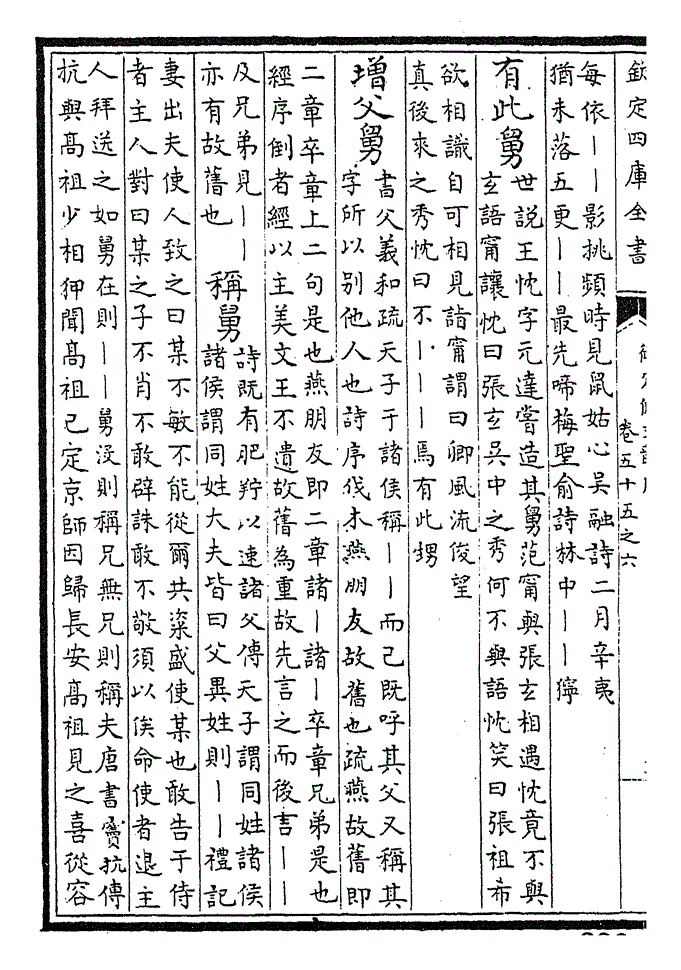 欽定四庫全書
卷五十五之六
每依――影挑頻時見鼠姑心吳融詩二月辛夷
猶未落五更――最先啼梅聖俞詩林中――獰
有此舅
世說王忱字元達嘗造其舅范甯與張玄相遇忱竟不與
玄語甯讓忱曰張玄吳中之秀何不與語忱笑曰張祖希
欲相識自可相見詣甯謂曰卿風流俊望
真後來之秀忱曰不―――焉有此甥
增父舅
書父義和疏天子于諸侯稱――而已既呼其父又稱其
字所以別他人也詩序伐木燕朋友故舊也疏燕故舊即
二章卒章上二句是也燕朋友即二章諸―諸―卒章兄弟是也
經序倒者經以主美文王不遺故舊為重故先言之而後言――
及兄弟見――
亦有故舊也
稱舅
詩既有肥羜以速諸父傳天子謂同姓諸侯
諸侯謂同姓大夫皆曰父異姓則――禮記
妻出夫使人致之曰某不敏不能從爾共粢盛使某也敢告于侍
者主人對曰某之子不肖不敢辟誅敢不敬須以俟命使者退主
人拜送之如舅在則――舅沒則稱兄無兄則稱夫唐書竇抗傳
抗與高祖少相狎聞高祖已定京師因歸長安高祖見之喜從容